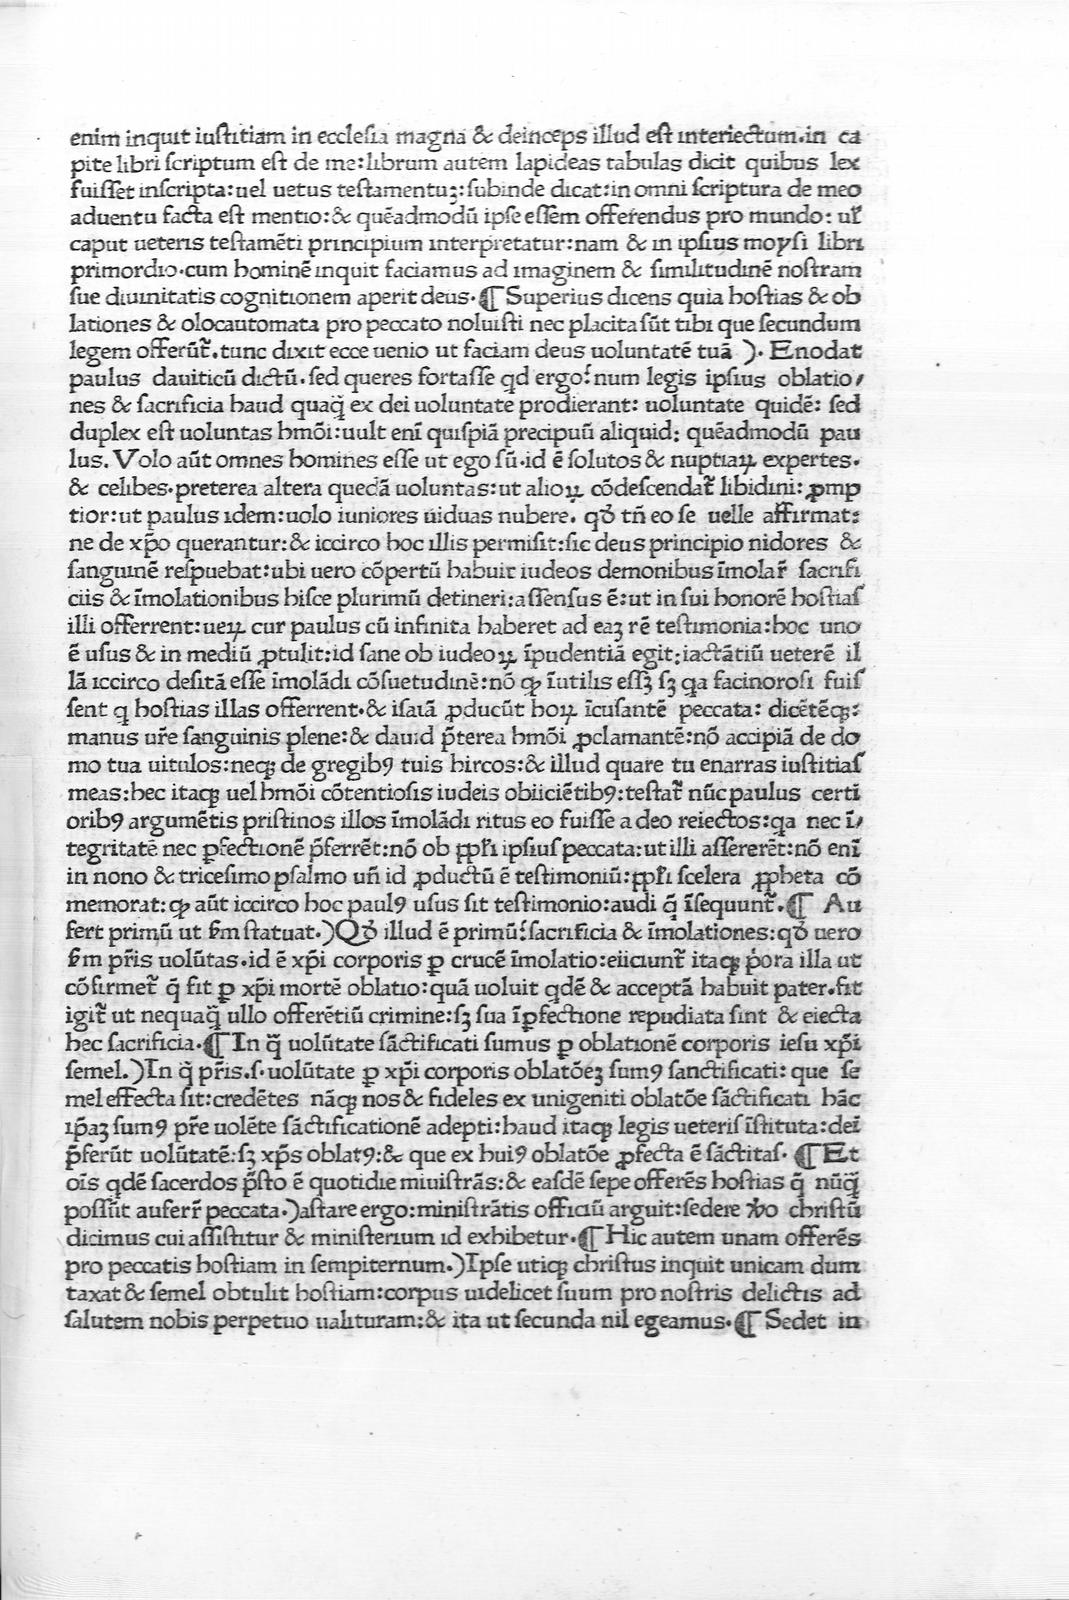 enim inquit iuſtitiam in eccleſia magna & deinceps illud eſt interiectum.in ca
pite libri ſcriptum eſt de me:librum autem lapideas tabulas dicit quibus lex
fuiſſet inſcripta:uel uetus teſtamentuꝫ:ſubinde dicat:in omni ſcriptura de meo
aduentu facta eſt mentio:& quēadmodū ipſe eſſem offerendus pro mundo: ul̃
caput ueteris teſtamēti principium interpretatur:nam & in ipſius moyſi libri
primordio.cum hominē inquit faciamus ad imaginem & ſimilitudinē noſtram
ſue diuinitatis cognitionem aperit deus.¶ Superius dicens quia hoſtias & ob
lationes & olocautomata pro peccato noluiſti nec placita ſūt tibi que ſecundum
legem offerūt̃.tunc dixit ecce uenio ut faciam deus uoluntatē tuā ). Enodat
paulus dauiticū dictū.ſed queres fortaſſe qd ergo?num legis ipſius oblatio/
nes & ſacrificia haud quaq̄ ex dei uoluntate prodierant: uoluntate quidē: ſed
duplex eſt uoluntas hmōi:uult enī quiſpiā precipuū aliquid: quēadmodū pau
lus. Volo aūt omnes homines eſſe ut ego ſū.id ē ſolutos & nuptiaꝝ expertes.
& celibes.preterea altera quedā uoluntas:ut alioꝝ cōdeſcendat̃ libidini: ꝓmp
tior:ut paulus idem:uolo iuniores uiduas nubere. qđ tñ eo ſe uelle affirmat:
ne de xp̄o querantur:& iccirco hoc illis permiſit:ſic deus principio nidores &
ſanguinē reſpuebat:ubi uero cōpertū habuit iudeos demonibus īmolar̃ ſacrifi
ciis & īmolationibus hiſce plurimū detineri:aſſenſus ē:ut in ſui honorē hoſtiaſ
illi offerrent:ueꝝ cur paulus cū infinita haberet ad eaꝫ rē teſtimonia:hoc uno
ē uſus & in mediū ꝓtulit:id ſane ob iudeoꝝ īpudentiā egit:iactātiū ueterē il
lā iccirco deſitā eſſe īmolādi cōſuetudinē:nō ꝙ īutilis eſſꝫ ſꝫ qa facinoroſi fuiſ
ſent q hoſtias illas offerrent.& iſaiā ꝓducūt hoꝝ īcuſantē peccata: dicētēqꝫ:
manus ur̄e ſanguinis plene:& dauid p̄terea hmōi ꝓclamantē:nō accipiā de do
mo tua uitulos:neqꝫ de gregibꝰ tuis hircos:& illud quare tu enarras iuſtitiaſ
meas:hec itaqꝫ uel hmōi cōtentioſis iudeis obiiciētibꝰ:teſtat̃ nūc paulus certi
oribꝰ argumētis priſtinos illos īmolādi ritus eo fuiſſe a deo reiectos:qa nec ī/
tegritatē nec ꝑfectionē p̄ferrēt:nō ob ꝑpl̃i ipſiuſ peccata:ut illi aſſererēt:nō enī
in nono & triceſimo pſalmo uñ id ꝓductū ē teſtimoniū:ꝑpl̃i ſcelera ꝓpheta cō
memorat:ꝙ aūt iccirco hoc paulꝰ uſus ſit teſtimonio:audi q̄ īſequunt̃.¶ Au
fert primū ut ſm̄ ſtatuat.)Qđ illud ē primū?ſacrificia & īmolationes:qđ uero
ſm̄ pr̄is uolūtas.id ē xp̄i corporis ꝑ crucē īmolatio:eiiciunt̃ itaqꝫ p̓ora illa ut
cōfirmet̃ q̄ fit ꝑ xp̄i mortē oblatio:quā uoluit qdē & acceptā habuit pater.fit
igit̃ ut nequaq̄ ullo offerētiū crimine:ſꝫ ſua īꝑfectione repudiata ſint & eiecta
hec ſacrificia.¶ In q̄ uolūtate ſāctificati ſumus ꝑ oblationē corporis ieſu xp̄i
ſemel.)In q̄ pr̄is.ſ.uolūtate ꝑ xp̄i corporis oblatōeꝫ ſumꝰ ſanctificati: que ſe
mel effecta ſit:credētes nāqꝫ nos & fideles ex unigeniti oblatōe ſāctificati hāc
ip̄aꝫ ſumꝰ pr̄e uolēte ſāctificationē adepti:haud itaqꝫ legis ueteriſ īſtituta:deī
p̄ferūt uolūtatē:ſꝫ xp̄s oblatꝰ:& que ex huiꝰ oblatōe ꝓfecta ē ſāctitaſ.¶ Et
oīs qdē ſacerdos p̄ſto ē quotidie miuiſtrās:& eaſdē ſepe offerēs hoſtias q̄ nūq̄
poſſūt auferr̃ peccata.)aſtare ergo:miniſtrātis officiū arguit:ſedere ꝟo chriſtū
dicimus cui aſſiſtitur & miniſterium id exhibetur.¶ Hic autem unam offerēs
pro peccatis hoſtiam in ſempiternum.)Ipſe utiqꝫ chriſtus inquit unicam dum
taxat & ſemel obtulit hoſtiam:corpus uidelicet ſuum pro noſtris delictis ad
ſalutem nobis perpetuo ualituram:& ita ut ſecunda nil egeamus.¶ Sedet in